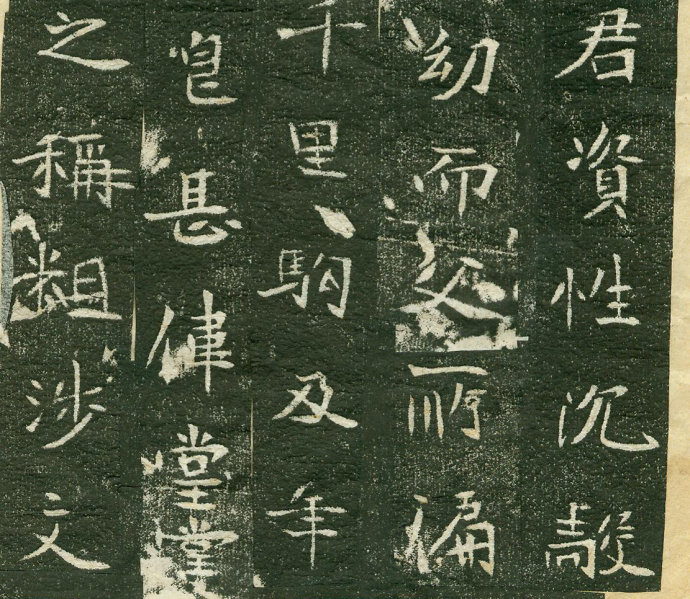 君資性沉毅
幼而所偏
千里駒及年
皃甚偉堂堂
之稱粗涉文